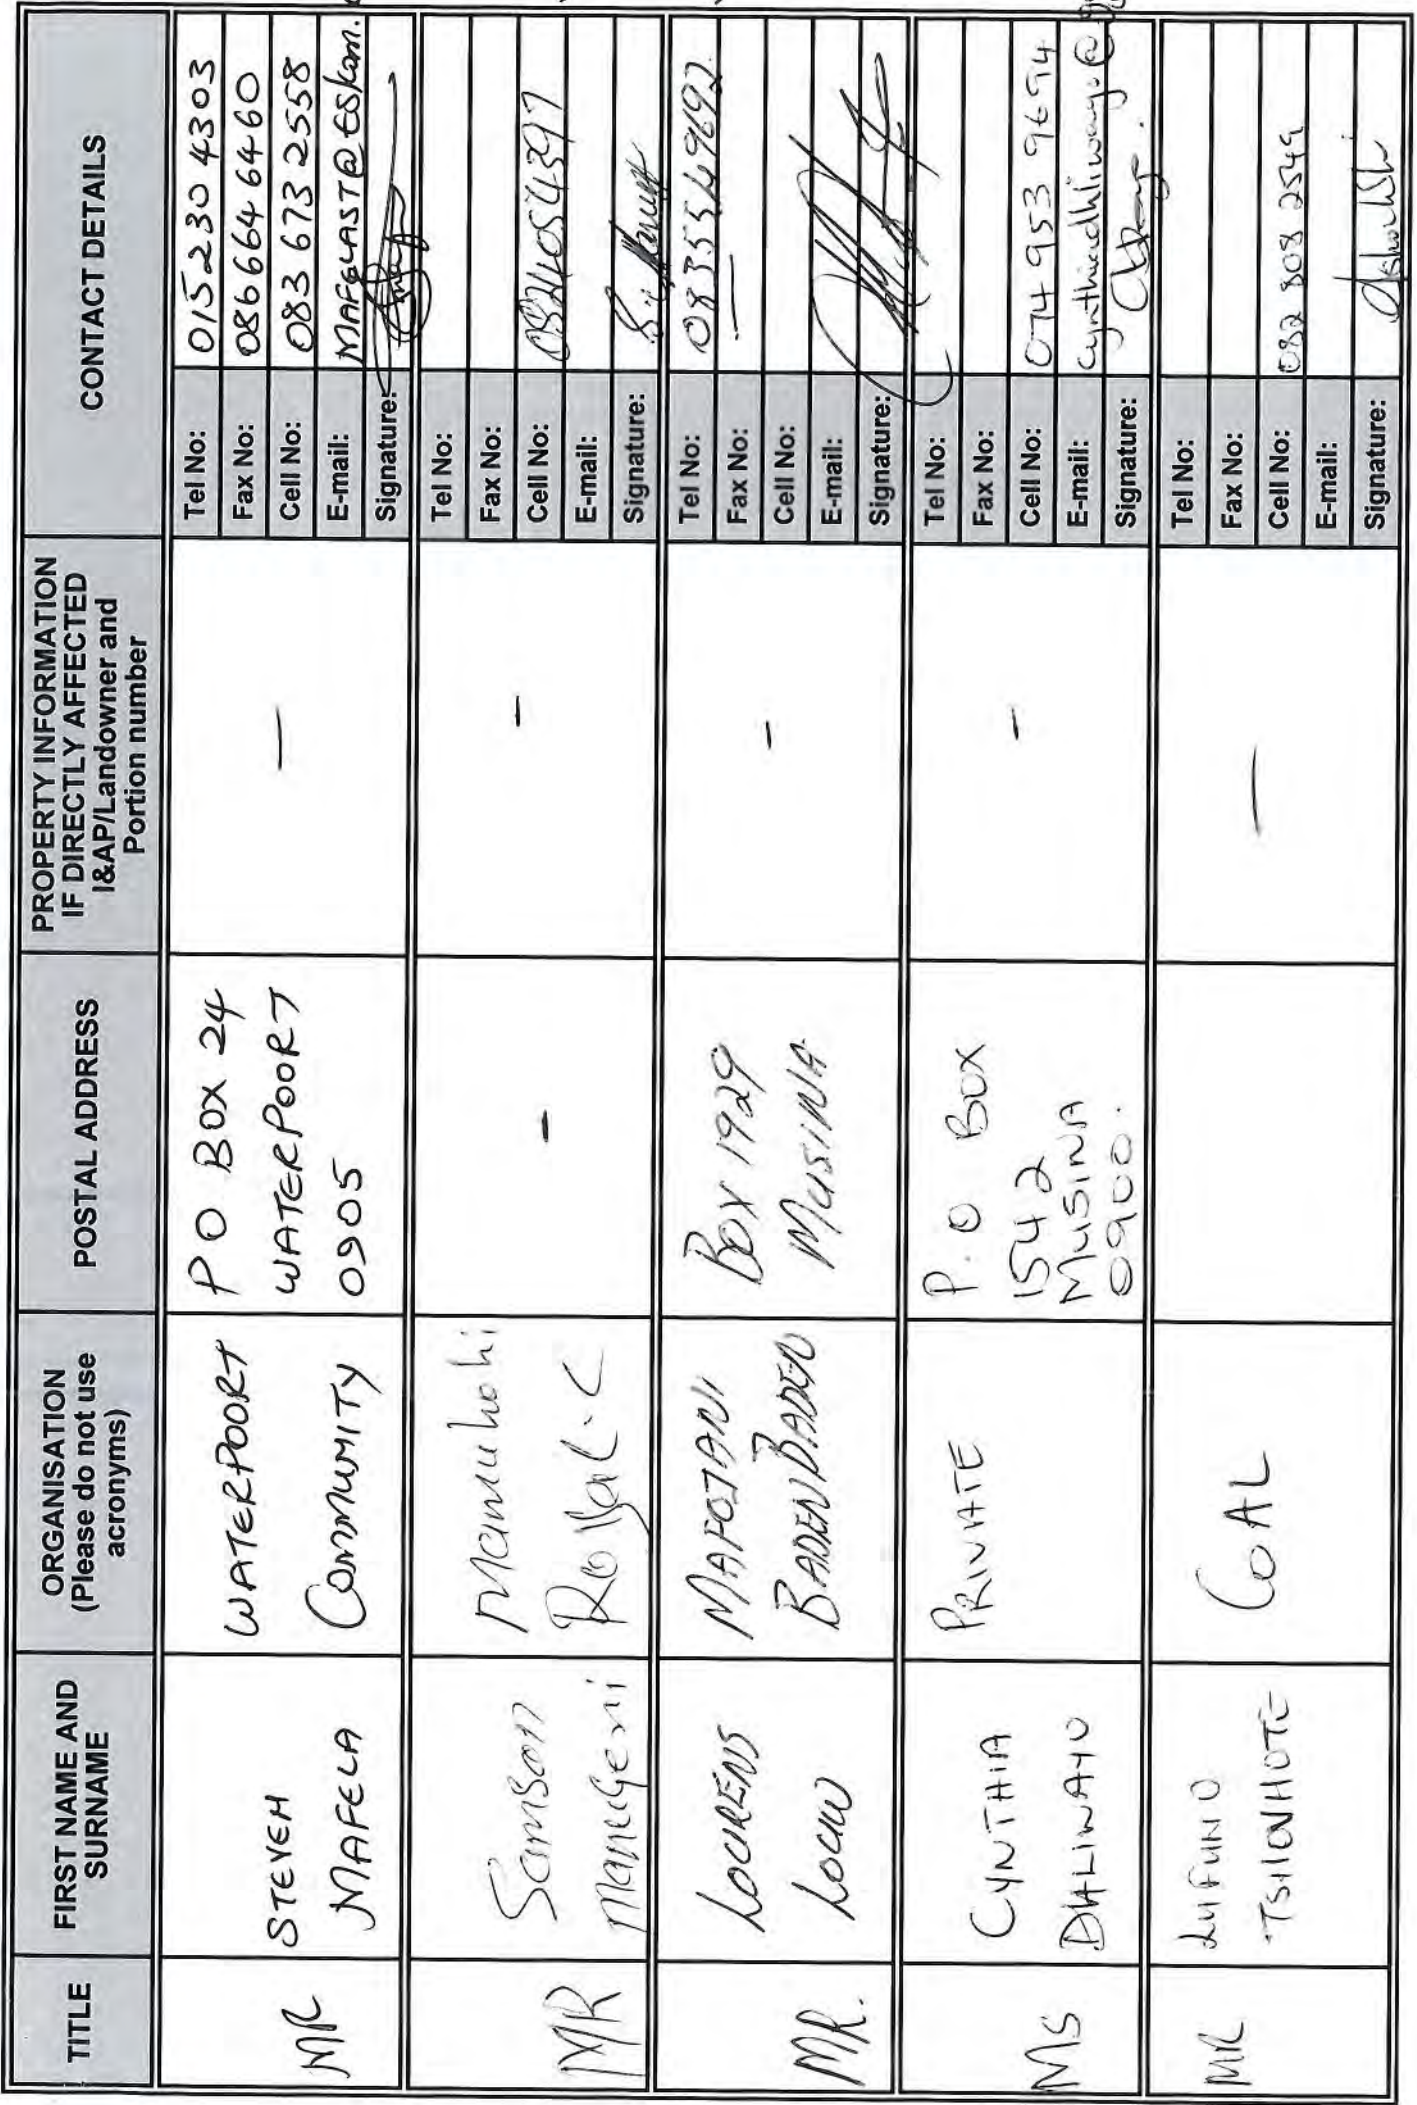 TITLE
FIRST NAME AND
SURNAME
ORGANISATION
(Please do not use
acronyms)
POSTAL ADDRESS
PROPERTY INFORMATION
IF DIRECTLY AFFECTED
I&AP/Landowner and
Portion number
CONTACT DETAILS
MR
STEVEN
MAFELA
WATERPOORT
COMMUNITY
P O BOX 24
WATERPOORT
0905
—
Tel No: 015 230 4303
Fax No: 086 664 6460
Cell No: 083 673 2558
E-mail: MAFELAST@ESKom.
Signature:
MR
Samson
Manugeni
-
-
Tel No:
Fax No:
Cell No: 0824054397
E-mail:
Signature:
MR.
LOURENS
LOUW
MAFOTANI
BADENBADEN
BOX 1929
MUSINA
-
Tel No: 0835549692
Fax No: —
Cell No:
E-mail:
Signature:
MS
CYNTHIA
DHLIWAYO
PRIVATE
P.O BOX
1542
MUSINA
0900.
-
Tel No:
Fax No:
Cell No: 074 953 9694
E-mail: cynthiadhliwayo@
Signature:
MR
LUFUNO
TSHIVHUTE
COAL
—
Tel No:
Fax No:
Cell No: 082 808 2549
E-mail:
Signature: